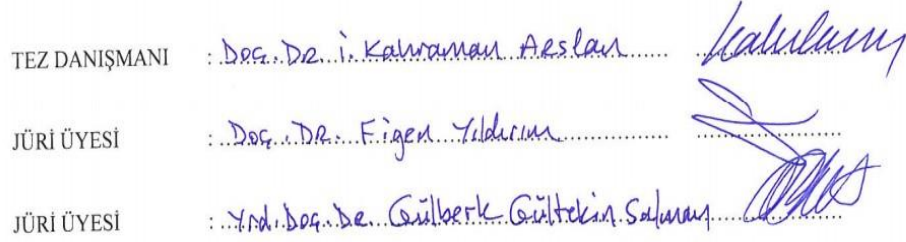 TEZ DANIŞMANI : Doç. Dr. İ. Kahraman Arslan
JÜRİ ÜYESİ : Doç. Dr. Figen Yıldırım
JÜRİ ÜYESİ : Yrd. Doç. Dr. Gülberk Gültekin Salman